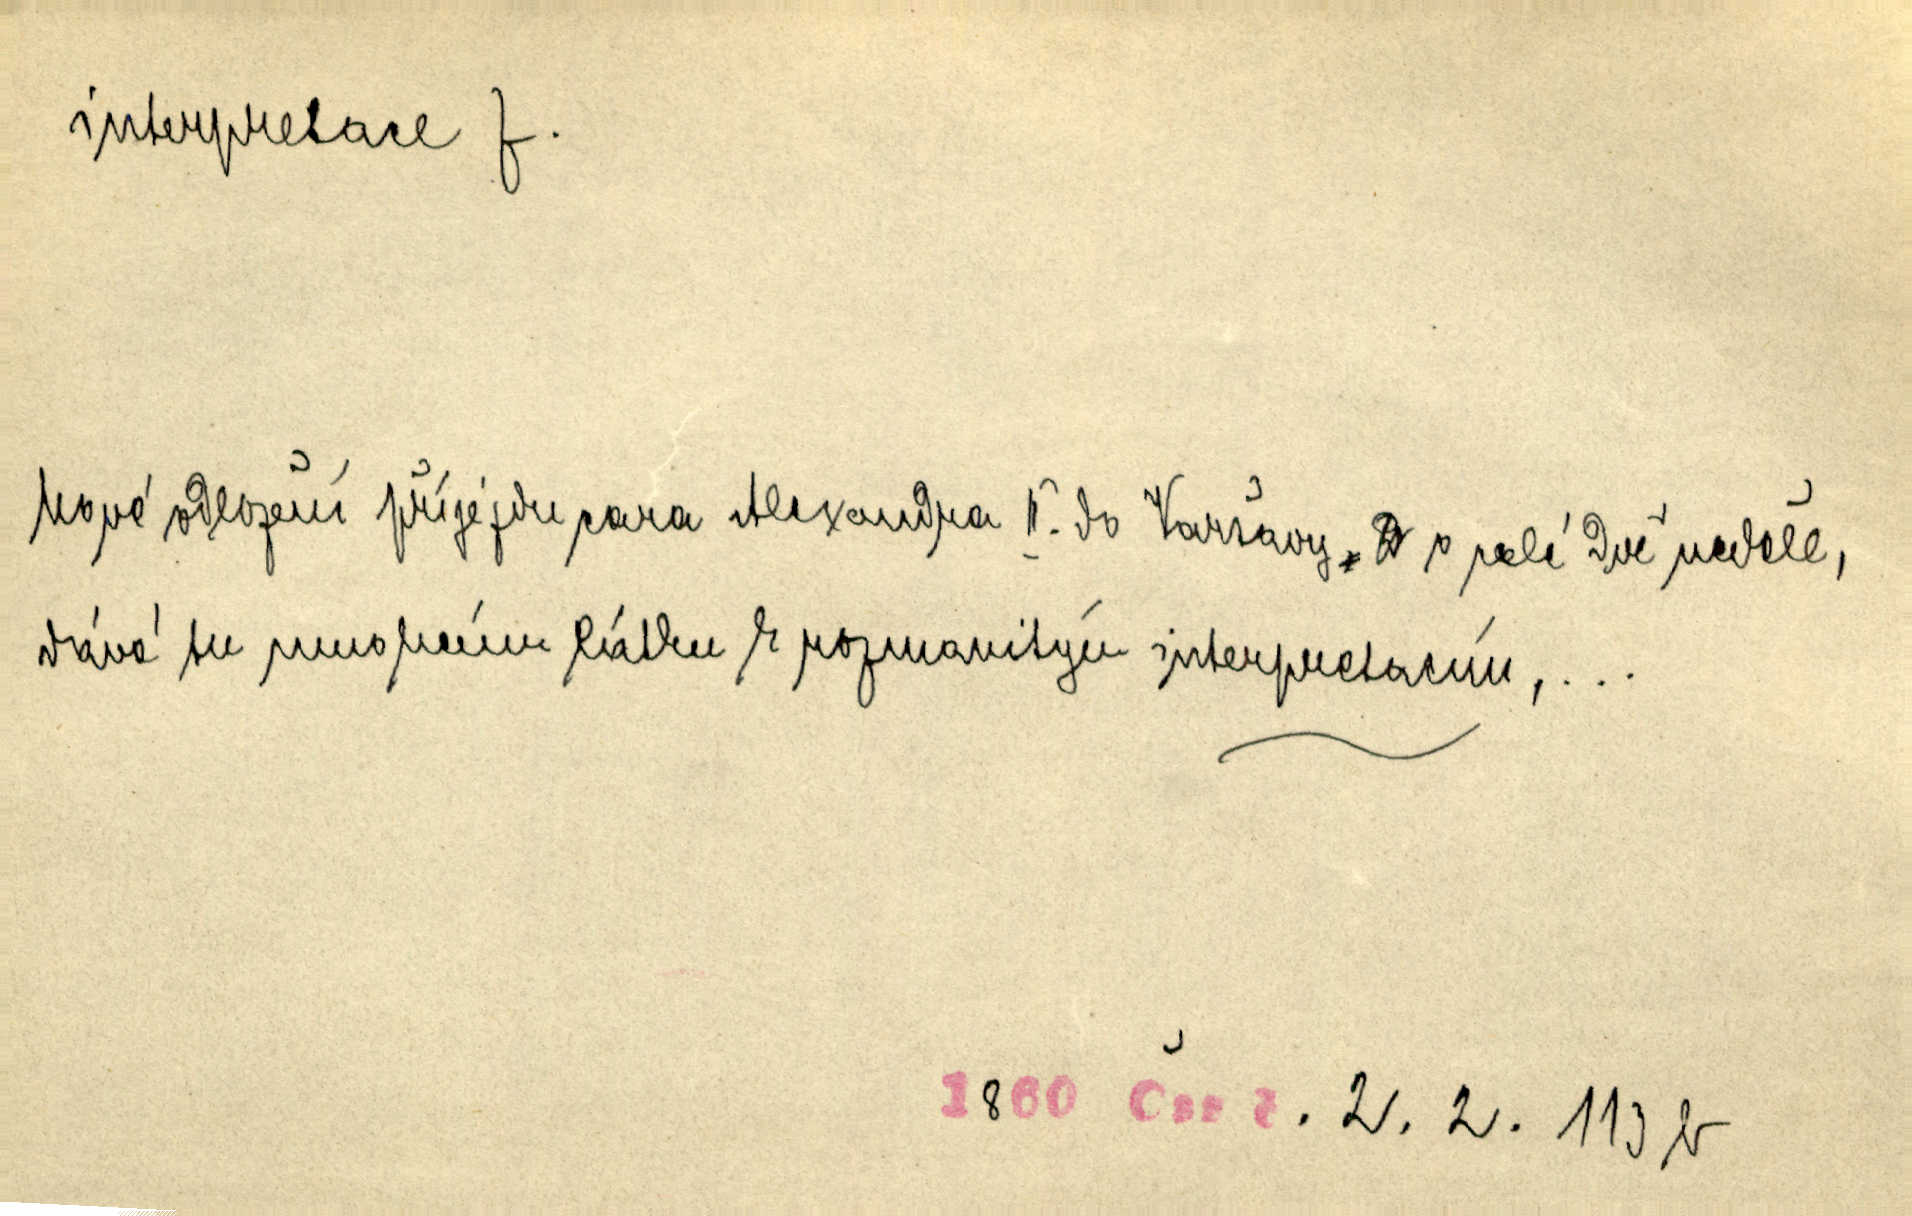 interpretace f.
Nové odložení příjezdu cara Alexandra II. do Varšavy, o celé dvě neděle,
dává tu mnohým látku k rozmanitým interpretacím, ...
1860 Čas ž. 2. 2. 113 b